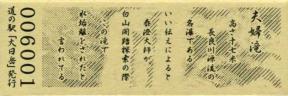 夫婦滝
高さ十七米
長良川源流の
名瀑である
いい伝えによると
泰澄大師が
白山開踏探索の際
この滝で
水垢離をとられたと
言われてる
006001
道の駅「大日岳」発行